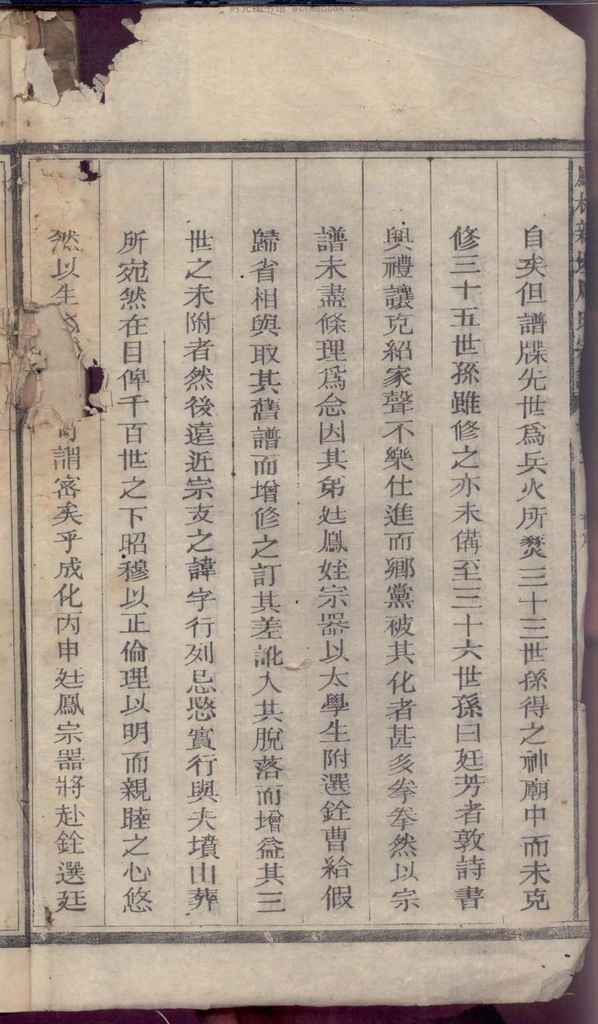 自矣但譜牒先世爲兵火所焚三十三世孫得之神廟中而未克
修三十五世孫雖修之亦未備至三十六世孫曰廷芳者敦詩書
與禮讓克紹家聲不樂仕進而鄉黨被其化者甚多拳拳然以宗
譜未盡條理爲念因其弟廷鳳姪宗器以太學生附選銓曹給假
歸省相與取其舊譜而增修之訂其差訛入其脫落而增益其三
世之未附者然後遠近宗支之諱字行列忌愍實行與夫墳山葬
所宛然在目俾千百世之下昭穆以正倫理以明而親睦之心悠
然以生 謂密矣乎成化丙申廷鳳宗器將赴銓選廷